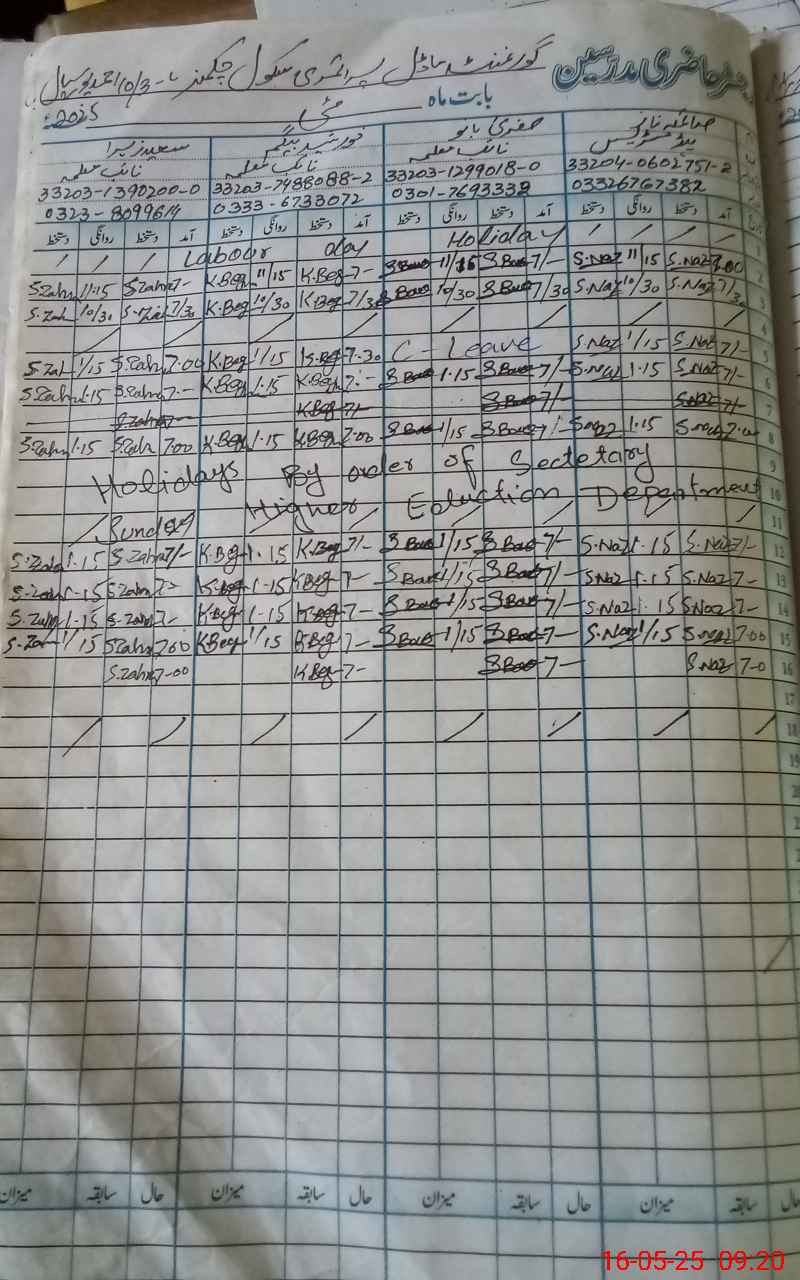 رجسٹر حاضری مدرسین گورنمنٹ ماڈل پرائمری سکول
بابت ماہ مئی 2025ء
صائمہ ناز صغریٰ بانو خورشید بیگم سعیدہ زہرا
ہیڈمسٹریس نائب معلمہ نائب معلمہ نائب معلمہ
33204-0602751-2 33203-1299018-0 33203-7488088-2 33203-1390200-0
03326767382 0301-7693338 0333-6733072 0323-8099614
آمد دستخط روانگی دستخط آمد دستخط روانگی دستخط آمد دستخط روانگی دستخط آمد دستخط روانگی دستخط
1 Labour day Holiday
2 S.Zahr 11:15 S.Zahr 7- K.Beg 11/15 K.Beg 7- S Bano 11/15 S Bano 7/- S.Naz 11/15 S.Naz 7.00
3 S.Zah 10/30 S.Zah 7/30 K.Beg 10/30 K.Beg 7/30 S Bano 10/30 S Bano 7/30 S.Naz 10/30 S.Naz 7/30
4
5 S.Zah 1/15 S.Zahr 7.00 K.Beg 1/15 K.Beg 7.30 C-Leave S.Naz 1/15 S.Naz 7/-
6 S.Zahr 1.15 S.Zahr 7.- K.Beg 1.15 K.Beg 7.- S Bano 1.15 S Bano 7/- S.Naz 1.15 S.Naz 7/-
7 S.Zahr 7- K.Beg 7/- S Bano 7/- S.Naz 7/-
8 S.Zahr 1.15 S.Zahr 7.00 K.Beg 1.15 K.Beg 7.00 S Bano 1/15 S Bano 7/- S.Naz 1.15 S.Naz 7.00
9 Holidays By order of Sectetary
10 Higher Eduction Depentment
11 Sunday
12 S.Zahr 1.15 S.Zahr 7/- K.Beg 1.15 K.Beg 7/- S Bano 1/15 S Bano 7/- S.Naz 1.15 S.Naz 7/-
13 S.Zahr 1-15 S.Zahr 7- K.Beg 1-15 K.Beg 7- S Bano 1/15 S Bano 7/- S.Naz 1.15 S.Naz 7-
14 S.Zahr 1-15 S.Zahr 7- K.Beg 1-15 K.Beg 7- S Bano 1/15 S Bano 7/- S.Naz 1.15 S.Naz 7-
15 S.Zah 1/15 S.Zahr 7.00 K.Beg 1/15 K.Beg 7- S Bano 1/15 S Bano 7- S.Naz 1/15 S.Naz 7.00
16 S.Zahr 7-00 K.Beg 7- S Bano 7- S.Naz 7-0
17
18
19
حال سابقہ میزان حال سابقہ میزان حال سابقہ میزان حال سابقہ میزان
16-05-25 09:20